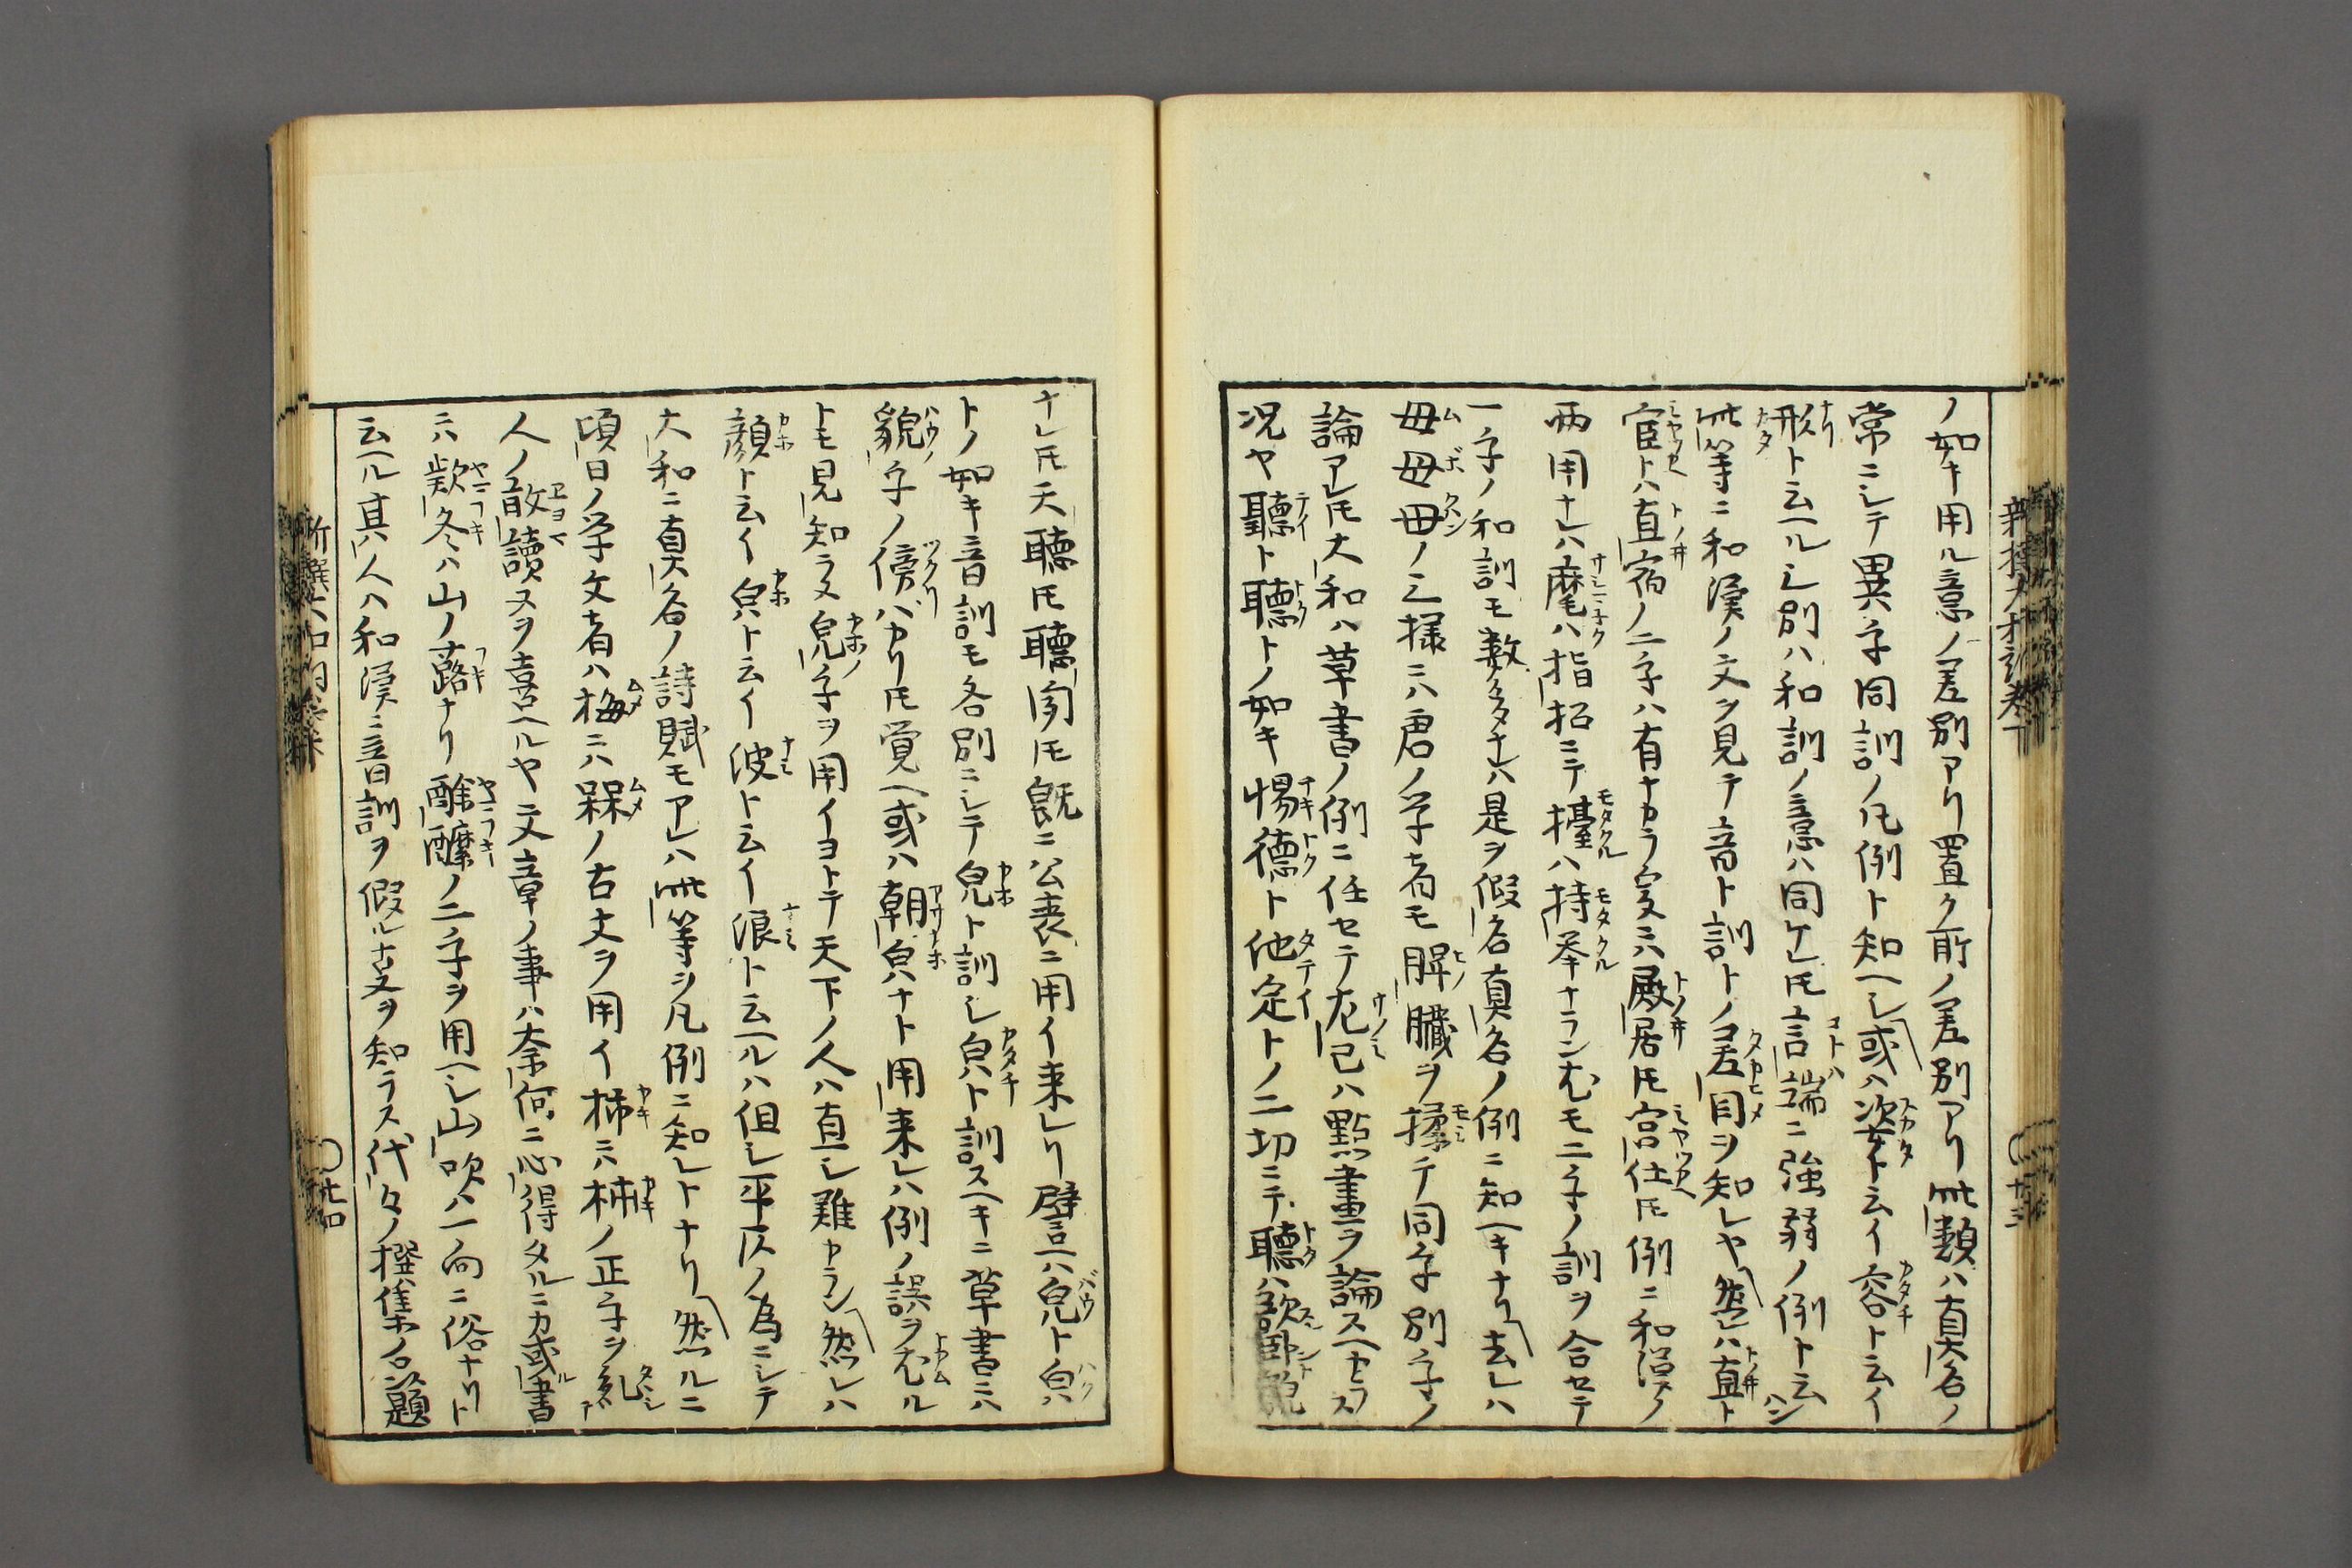 ノ如キ用ル意ノ差別アリ置ク所ノ差別アリ此類ハ真名ノ
常ニシテ異字同訓ノ凡例ト知ヘシ或ハ姿ト云イ容ト云イ
形ト云ヘルシ別ハ和訓ノ意ハ同ケレ𪜈言端ニ強弱ノ例ト云ハン
此等ニ和漢ノ文ヲ見テ音ト訓トノ差目ヲ知レヤ然レハ直ト
宦トハ直宿ノ二字ハ有ナカラ爰ニハ殿居𪜈宮仕𪜈例ニ和漢ノ
両用ナレハ麾ハ指招ニテ擡ハ持举ナランむモ二字ノ訓ヲ合セテ
一字ノ和訓モ数多ナレハ是ヲ假名真名ノ例ニ知ヘキナリ去レハ
毋母毌ノ三様ニハ唐ノ学者モ脾臓ヲ揉テ同字別字ノ
論アレ𪜈大和ハ草書ノ例ニ任セテ左已ハ點畫ヲ論スヘカラス
况ヤ聽ト聴トノ如キ惕德ト他定トノ二切ニテ聽ハ
ナレ𪜈天聽𪜈聽聞𪜈既ニ公表ニ用イ来レリ譬ハ皃ト㒵
トノ如キ音訓モ各別ニシテ皃ト訓シ㒵ト訓スヘキニ草書ニハ
貌字ノ傍バカリ𪜈覚ヘ或ハ朝㒵ナト用来レハ例ノ誤ヲむル
トモ見知ラヌ皃字ヲ用イヨトテ天下ノ人ハ直シ難カラン然レハ
顔ト云イ㒵ト云イ波ト云イ浪ト云ヘルハ但シ平仄ノ為ニシテ
大和ニ真名ノ詩賦モアレハ此等ヲ凡例ニ知レトナリ然ルニ
頃日ノ学文者ハ梅ニハ槑ノ古文ヲ用イ柿ニハ柹ノ正字ヲ
人ノ敢讀ヌヲ喜ヘルヤ文章ノ事ハ奈何ニ心得タルニカ或書
ニハ欵冬ハ山ノ蕗ナリ酴醾ノ二字ヲ用ヘシ山吹ハ一向ニ俗ナリト
云ヘル其人ハ和漢ニ音訓ヲ假ル支ヲ知ラス代々ノ撰集ノ名題